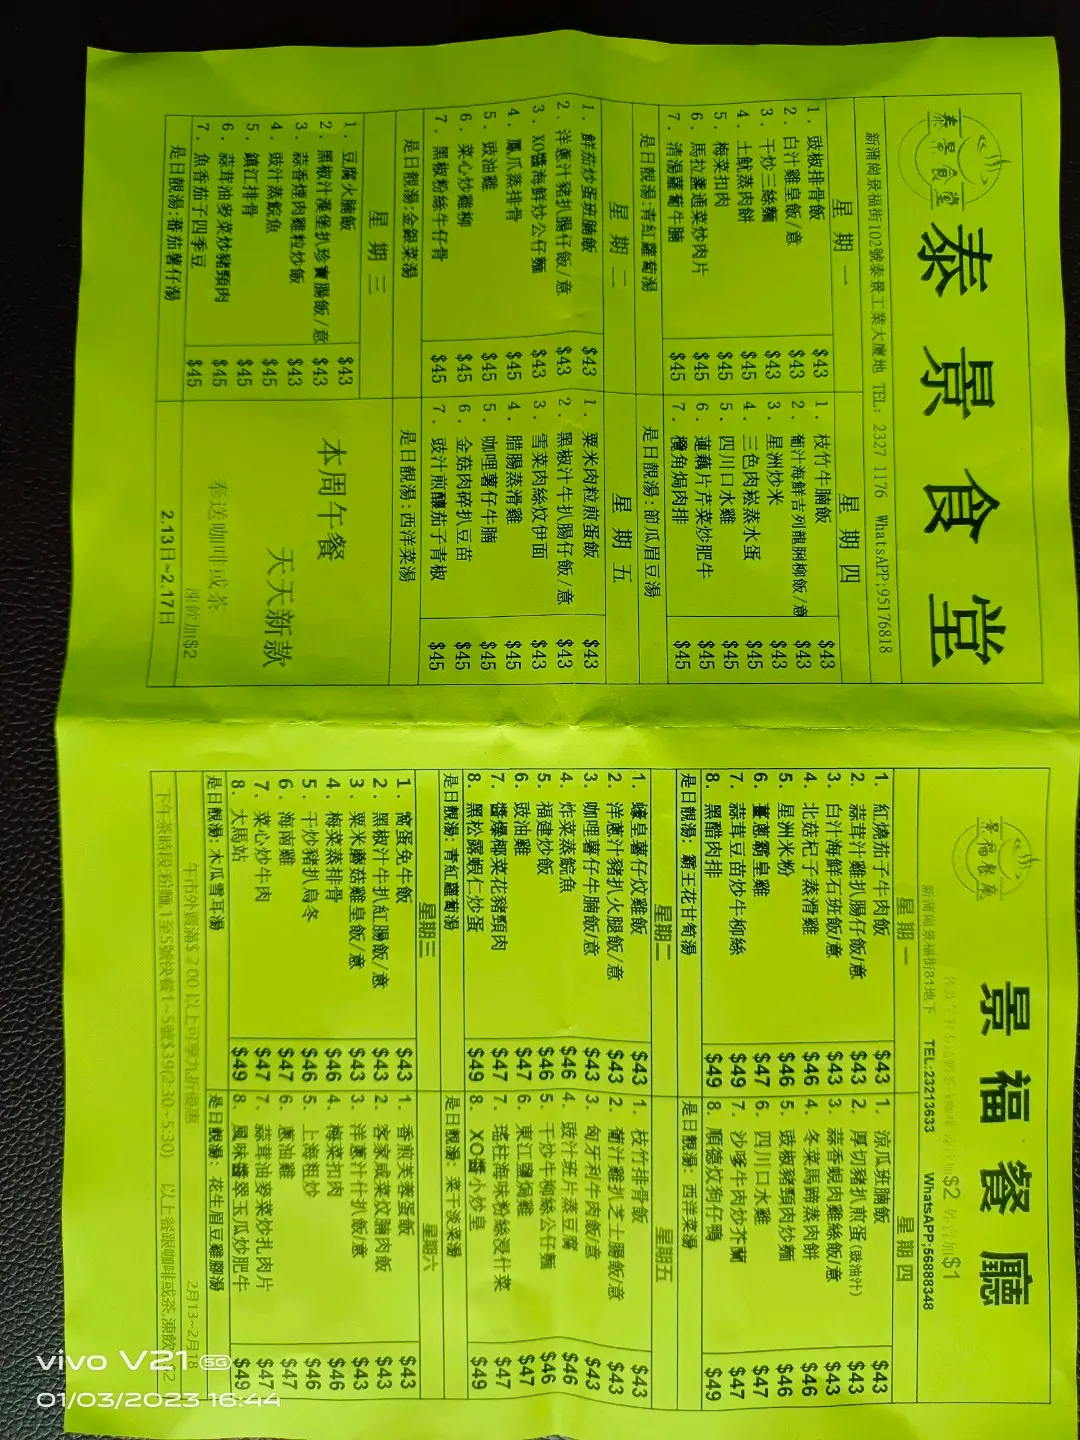 泰景食堂
泰景食堂
新蒲崗景福街102號泰景工業大廈地 TEL: 2327 1176 WhatsAPP;95176818
星期一
1. 豉椒排骨飯 $43
2. 白汁雞皇飯/意 $43
3. 干炒三絲麵 $43
4. 土魷蒸肉餅 $45
5. 梅菜扣肉 $45
6. 馬拉盞通菜炒肉片 $45
7. 清湯蘿蔔牛腩 $45
是日靚湯:青紅蘿蔔湯
星期二
1. 鮮茄炒蛋班腩飯 $43
2. 洋蔥汁豬扒腸仔飯/意 $43
3. XO醬海鮮炒公仔麵 $43
4. 鳳爪蒸排骨 $45
5. 豉油雞 $45
6. 菜心炒雞柳 $45
7. 黑椒粉絲牛仔骨 $45
是日靚湯:金銀菜湯
星期三
1. 豆腐火腩飯 $43
2. 黑椒汁漢堡扒珍寶腸飯/意 $43
3. 蒜香煙肉雞粒炒飯 $43
4. 豉汁蒸鯇魚 $45
5. 鎮江排骨 $45
6. 蒜茸油麥菜炒豬頸肉 $45
7. 魚香茄子四季豆 $45
是日靚湯:蕃茄薯仔湯
星期四
1. 枝竹牛腩飯 $43
2. 葡汁海鮮吉列龍脷柳飯/意 $43
3. 星洲炒米 $43
4. 三色肉崧蒸水蛋 $45
5. 四川口水雞 $45
6. 蓮藕片芹菜炒肥牛 $45
7. 欖角焗肉排 $45
是日靚湯:節瓜眉豆湯
星期五
1. 粟米肉粒煎蛋飯 $43
2. 黑椒汁牛扒腸仔飯/意 $43
3. 雪菜肉絲炆伊面 $43
4. 腊腸蒸滑雞 $45
5. 咖哩薯仔牛腩 $45
6. 金菇肉碎扒豆苗 $45
7. 豉汁煎釀茄子青椒 $45
是日靚湯:西洋菜湯
本周午餐
天天新款
奉送咖啡或茶
凍飲加$2
2.13日~2.17日
景福餐廳
景福餐廳
$2 外賣加$1
新蒲崗景福街81地下 TEL:23213633 WhatsAPP;56888348
星期一
1. 紅燒茄子牛肉飯 $43
2. 蒜茸汁雞扒腸仔飯/意 $43
3. 白汁海鮮石班飯/意 $43
4. 北菇杞子蒸滑雞 $46
5. 星洲米粉 $46
6. 薑蔥霸皇雞 $47
7. 蒜茸豆苗炒牛柳絲 $49
8. 黑醋肉排 $49
是日靚湯: 霸王花甘筍湯
星期二
1. 蠔皇薯仔炆雞飯 $43
2. 洋蔥汁豬扒火腿飯/意 $43
3. 咖哩薯仔牛腩飯/意 $43
4. 炸菜蒸鯇魚 $46
5. 福建炒飯 $46
6. 豉油雞 $47
7. 醬爆椰菜花豬頸肉 $47
8. 黑松露蝦仁炒蛋 $49
是日靚湯: 青紅蘿蔔湯
星期三
1. 窩蛋免牛飯 $43
2. 黑椒汁牛扒紅腸飯/意 $43
3. 粟米磨菇雞皇飯/意 $43
4. 梅菜蒸排骨 $46
5. 干炒豬扒烏冬 $46
6. 海南雞 $47
7. 菜心炒牛肉 $47
8. 大馬站 $49
是日靚湯: 木瓜雪耳湯
星期四
1. 涼瓜班腩飯 $43
2. 厚切豬扒煎蛋(豉油汁) $43
3. 蒜香蜆肉雞絲飯/意 $43
4. 冬菜馬蹄蒸肉餅 $46
5. 豉椒豬頸肉炒麵 $46
6. 四川口水雞 $47
7. 沙嗲牛肉炒芥蘭 $47
8. 順德炆狗仔鴨 $49
是日靚湯: 西洋菜湯
星期五
1. 枝竹排骨飯 $43
2. 葡汁雞扒芝士腸飯/意 $43
3. 匈牙利牛肉飯/意 $43
4. 豉汁班片蒸豆腐 $46
5. 干炒牛柳絲公仔麵 $46
6. 東江鹽焗雞 $47
7. 瑤柱海味粉絲浸什菜 $47
8. XO醬小炒皇 $49
是日靚湯: 菜干淡菜湯
星期六
1. 香煎芙蓉蛋飯 $43
2. 客家咸菜炆腩肉飯 $43
3. 洋蔥汁什扒飯/意 $43
4. 梅菜扣肉 $46
5. 上海粗炒 $46
6. 蔥油雞 $47
7. 蒜茸油麥菜炒扎肉片 $47
8. 風味醬翠玉瓜炒肥牛 $49
是日靚湯: 花生眉豆雞腳湯
午市外賣滿$200以上可享九折優惠 2月13~2月18
下午茶時段:粉麵1至5號快餐1~5號$39(2:30-5:30) 以上餐跟咖啡或茶,凍飲
vivo V21 5G
01/03/2023 16:44